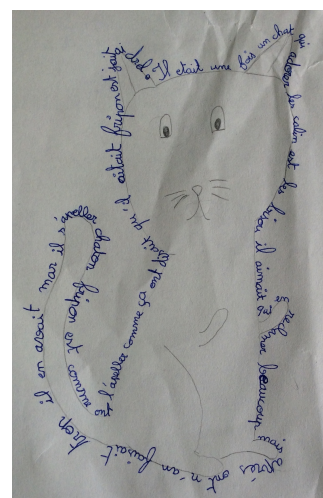 Il était une fois un chat
qui adorer les calin est les bisou il aimait ça
é reclamer beaucoup mais
après ont n'an faisait trop
il en avait mar il s'apeller chaton fripon est comme
é l'apeller comme ça ont disait qu'il aitait fripon est fait